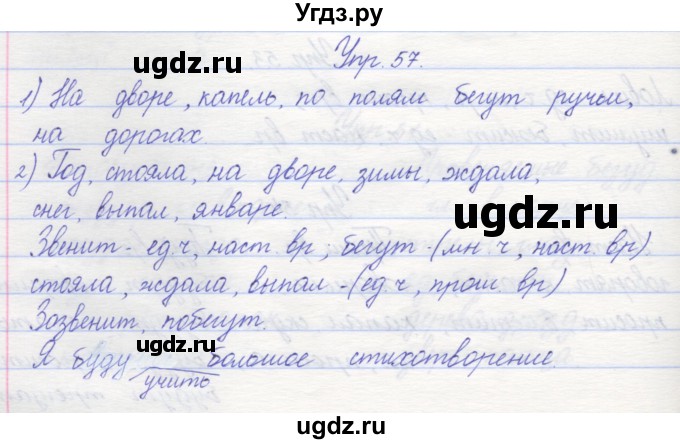 Угдз.ру
Упр. 57.
1) На дворе, капель, по полям бегут ручьи,
на дорогах.
2) Год, стояла, на дворе, зимы, ждала,
снег, выпал, январе.
ugdz.ru
Звенит - ед.ч, наст. вр, бегут - (мн. ч, наст. вр)
стояла, ждала, выпал - (ед. ч, прош. вр)
Зозвенит, побегут.
ugdz.ru
Я буду большое стихотворение.
учить
ugdz.ru